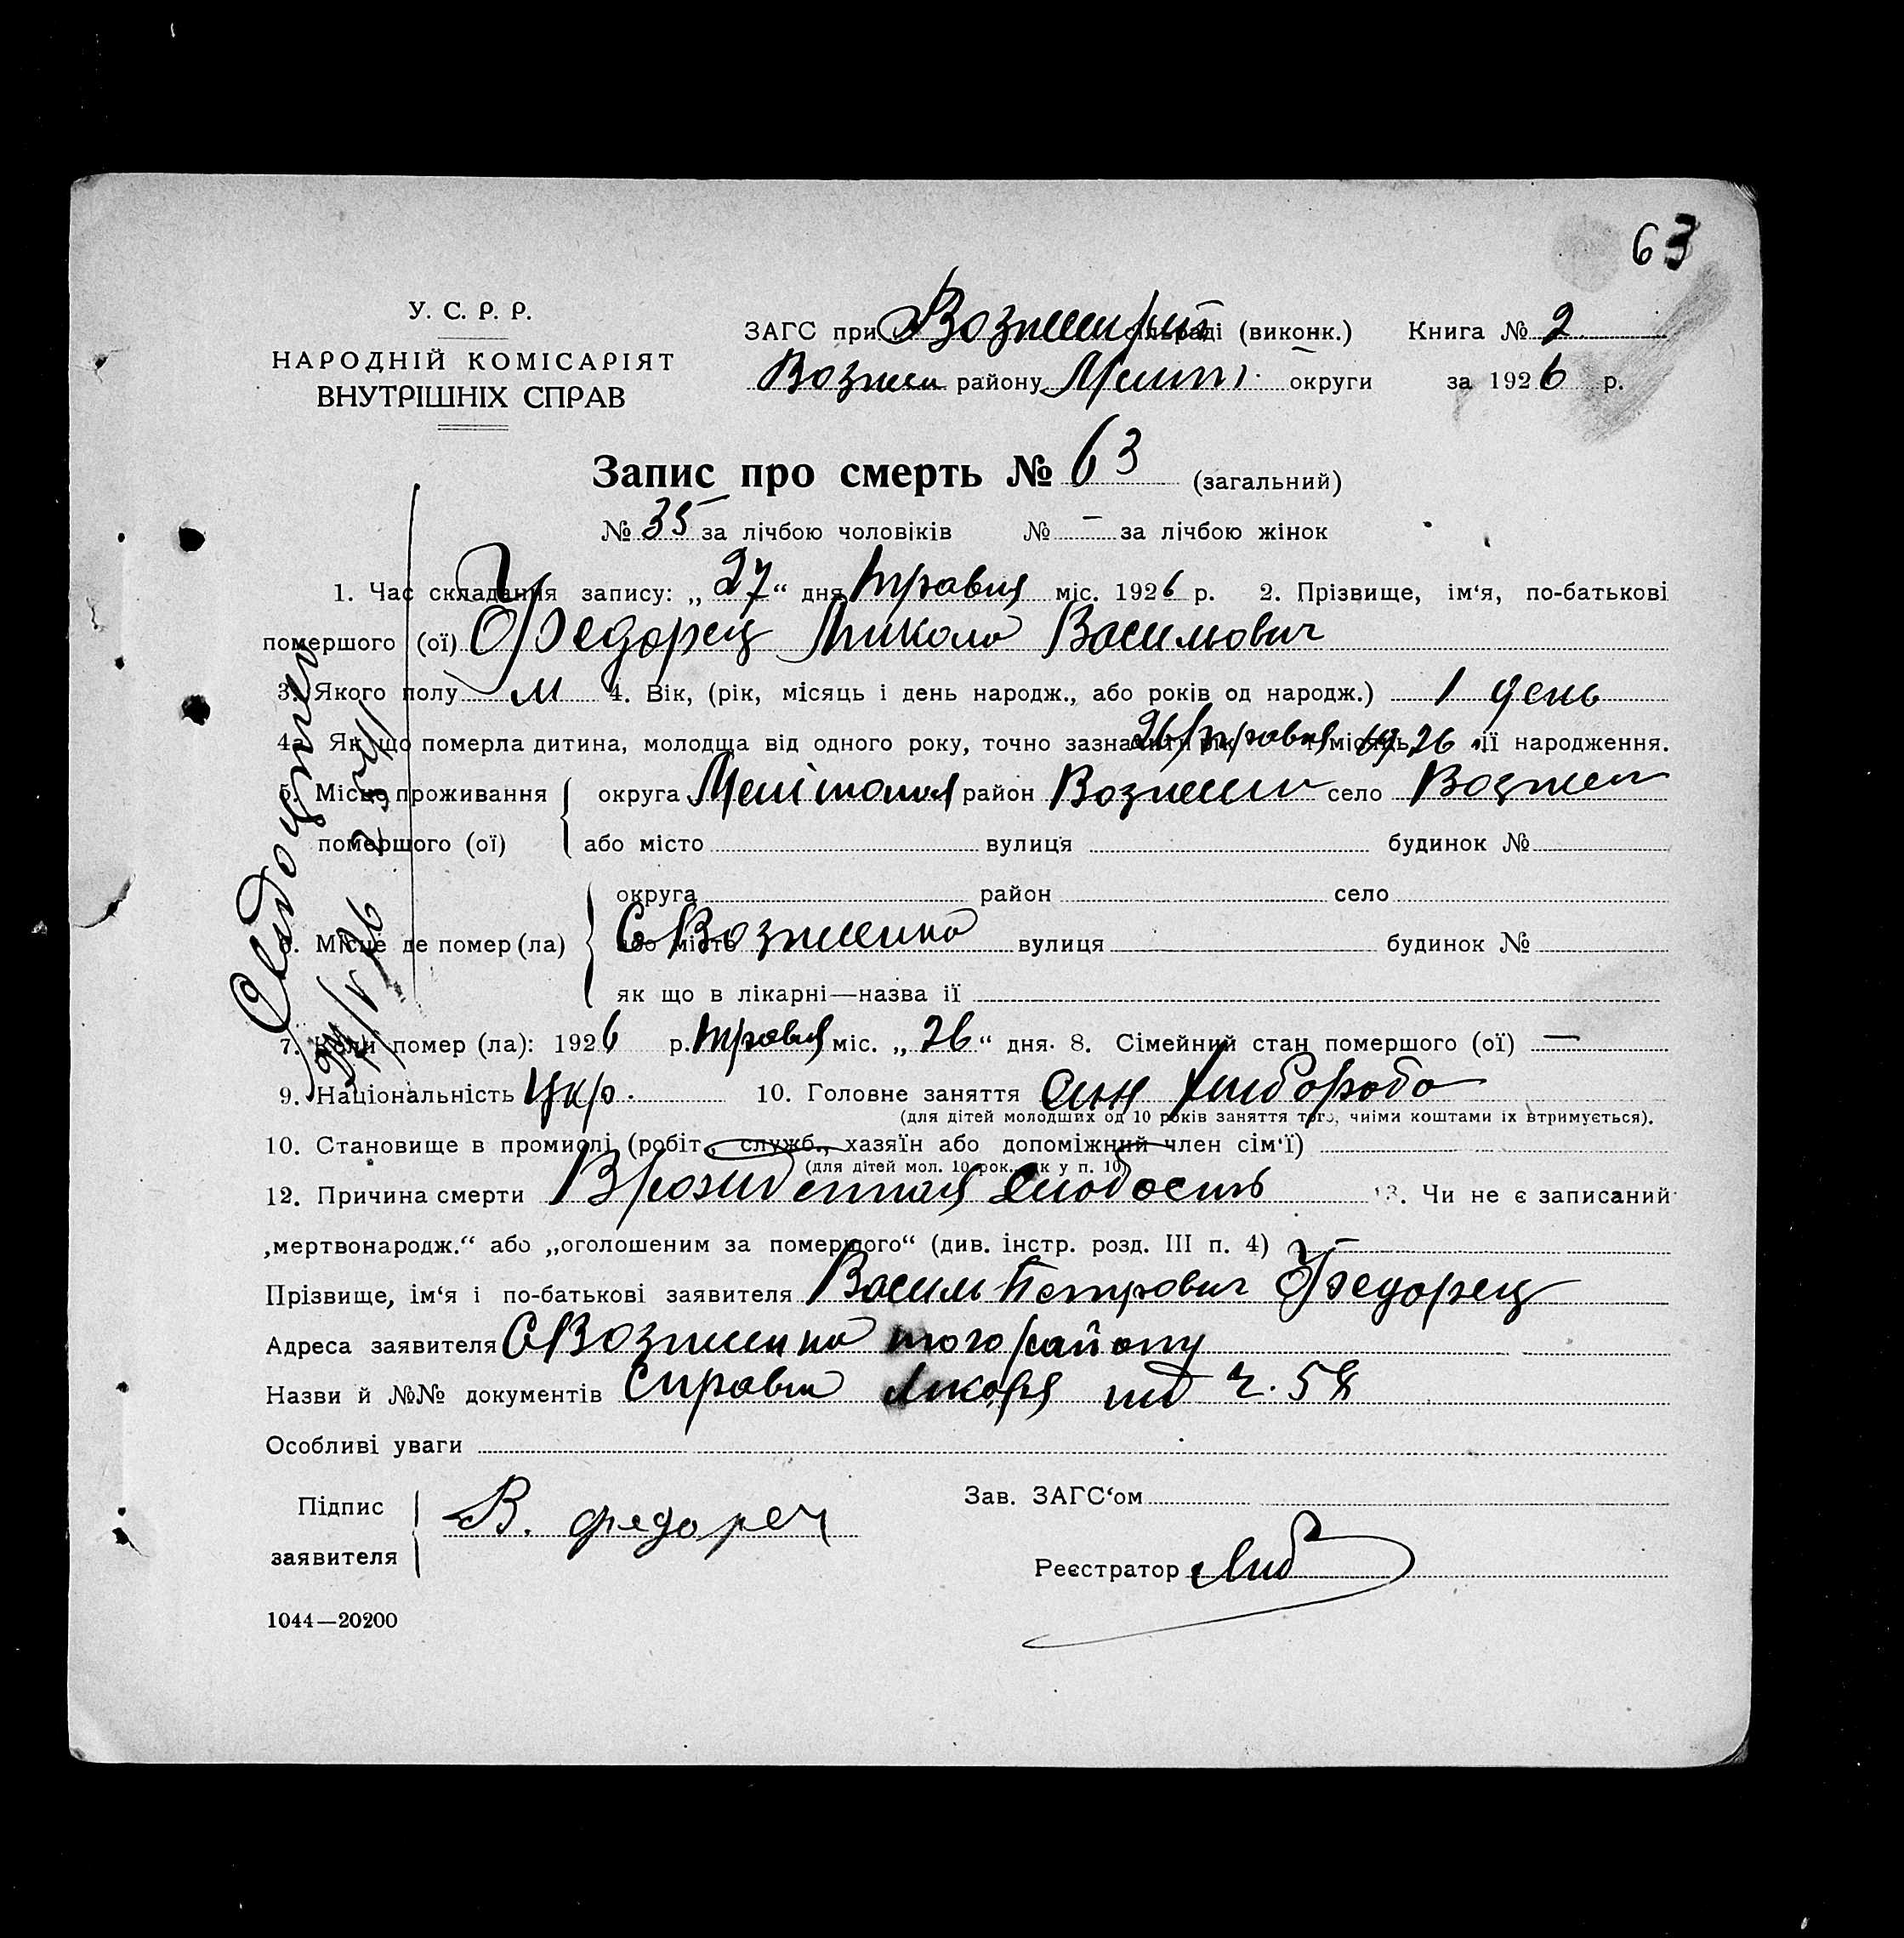 63
У. С. Р. Р.
НАРОДНІЙ КОМІСАРІЯТ
ВНУТРІШНІХ СПРАВ
ЗАГС при сільраді (виконк.) Книга № 2
Возписи району Меліт. округи за 1926 р.
Запис про смерть № 63 (загальний)
№ 35 за лічбою чоловіків № — за лічбою жінок
1. Час складання запису: „27“ дня травня міс. 1926 р. 2. Прізвище, ім‘я, по-батькові
помершого (ої) Федорец Микола Васильович
3. Якого полу м 4. Вік, (рік, місяць і день народж., або років од народж.) 1 день
4а. Як що померла дитина, молодща від одного року, точно зазначити рік 26 травня місяць 1926 ії народження.
5. Місце проживання округа Мелітопол район Вознесен село Вознесен
помершого (ої) або місто вулиця будинок №
округа район село
6. Місце де помер (ла) або місто С Вознесенка вулиця будинок №
як що в лікарні—назва ії
7. Коли помер (ла): 1926 р. травня міс. „26“ дня. 8. Сімейний стан помершого (ої) —
9. Національність Укр. 10. Головне заняття син хлібороба
(для дітей молодших од 10 років заняття того, чиїми коштами їх втримується).
10. Становище в промислі (робіт., служб., хазяїн або допоміжний член сім‘ї)
(для дітей мол. 10 рок. як у п. 10)
12. Причина смерти Врожденная слабость 13. Чи не є записаний
„мертвонародж.“ або „оголошеним за помершого“ (див. інстр. розд. III п. 4) —
Прізвище, ім‘я і по-батькові заявителя Василь Петрович Федорец
Адреса заявителя С Вознесенка того району
Назви й №№ документів Справка лікаря під ч. 58
Особливі уваги
Підпис
заявителя В. Федорец
Зав. ЗАГС‘ом
Реєстратор
1044—20200